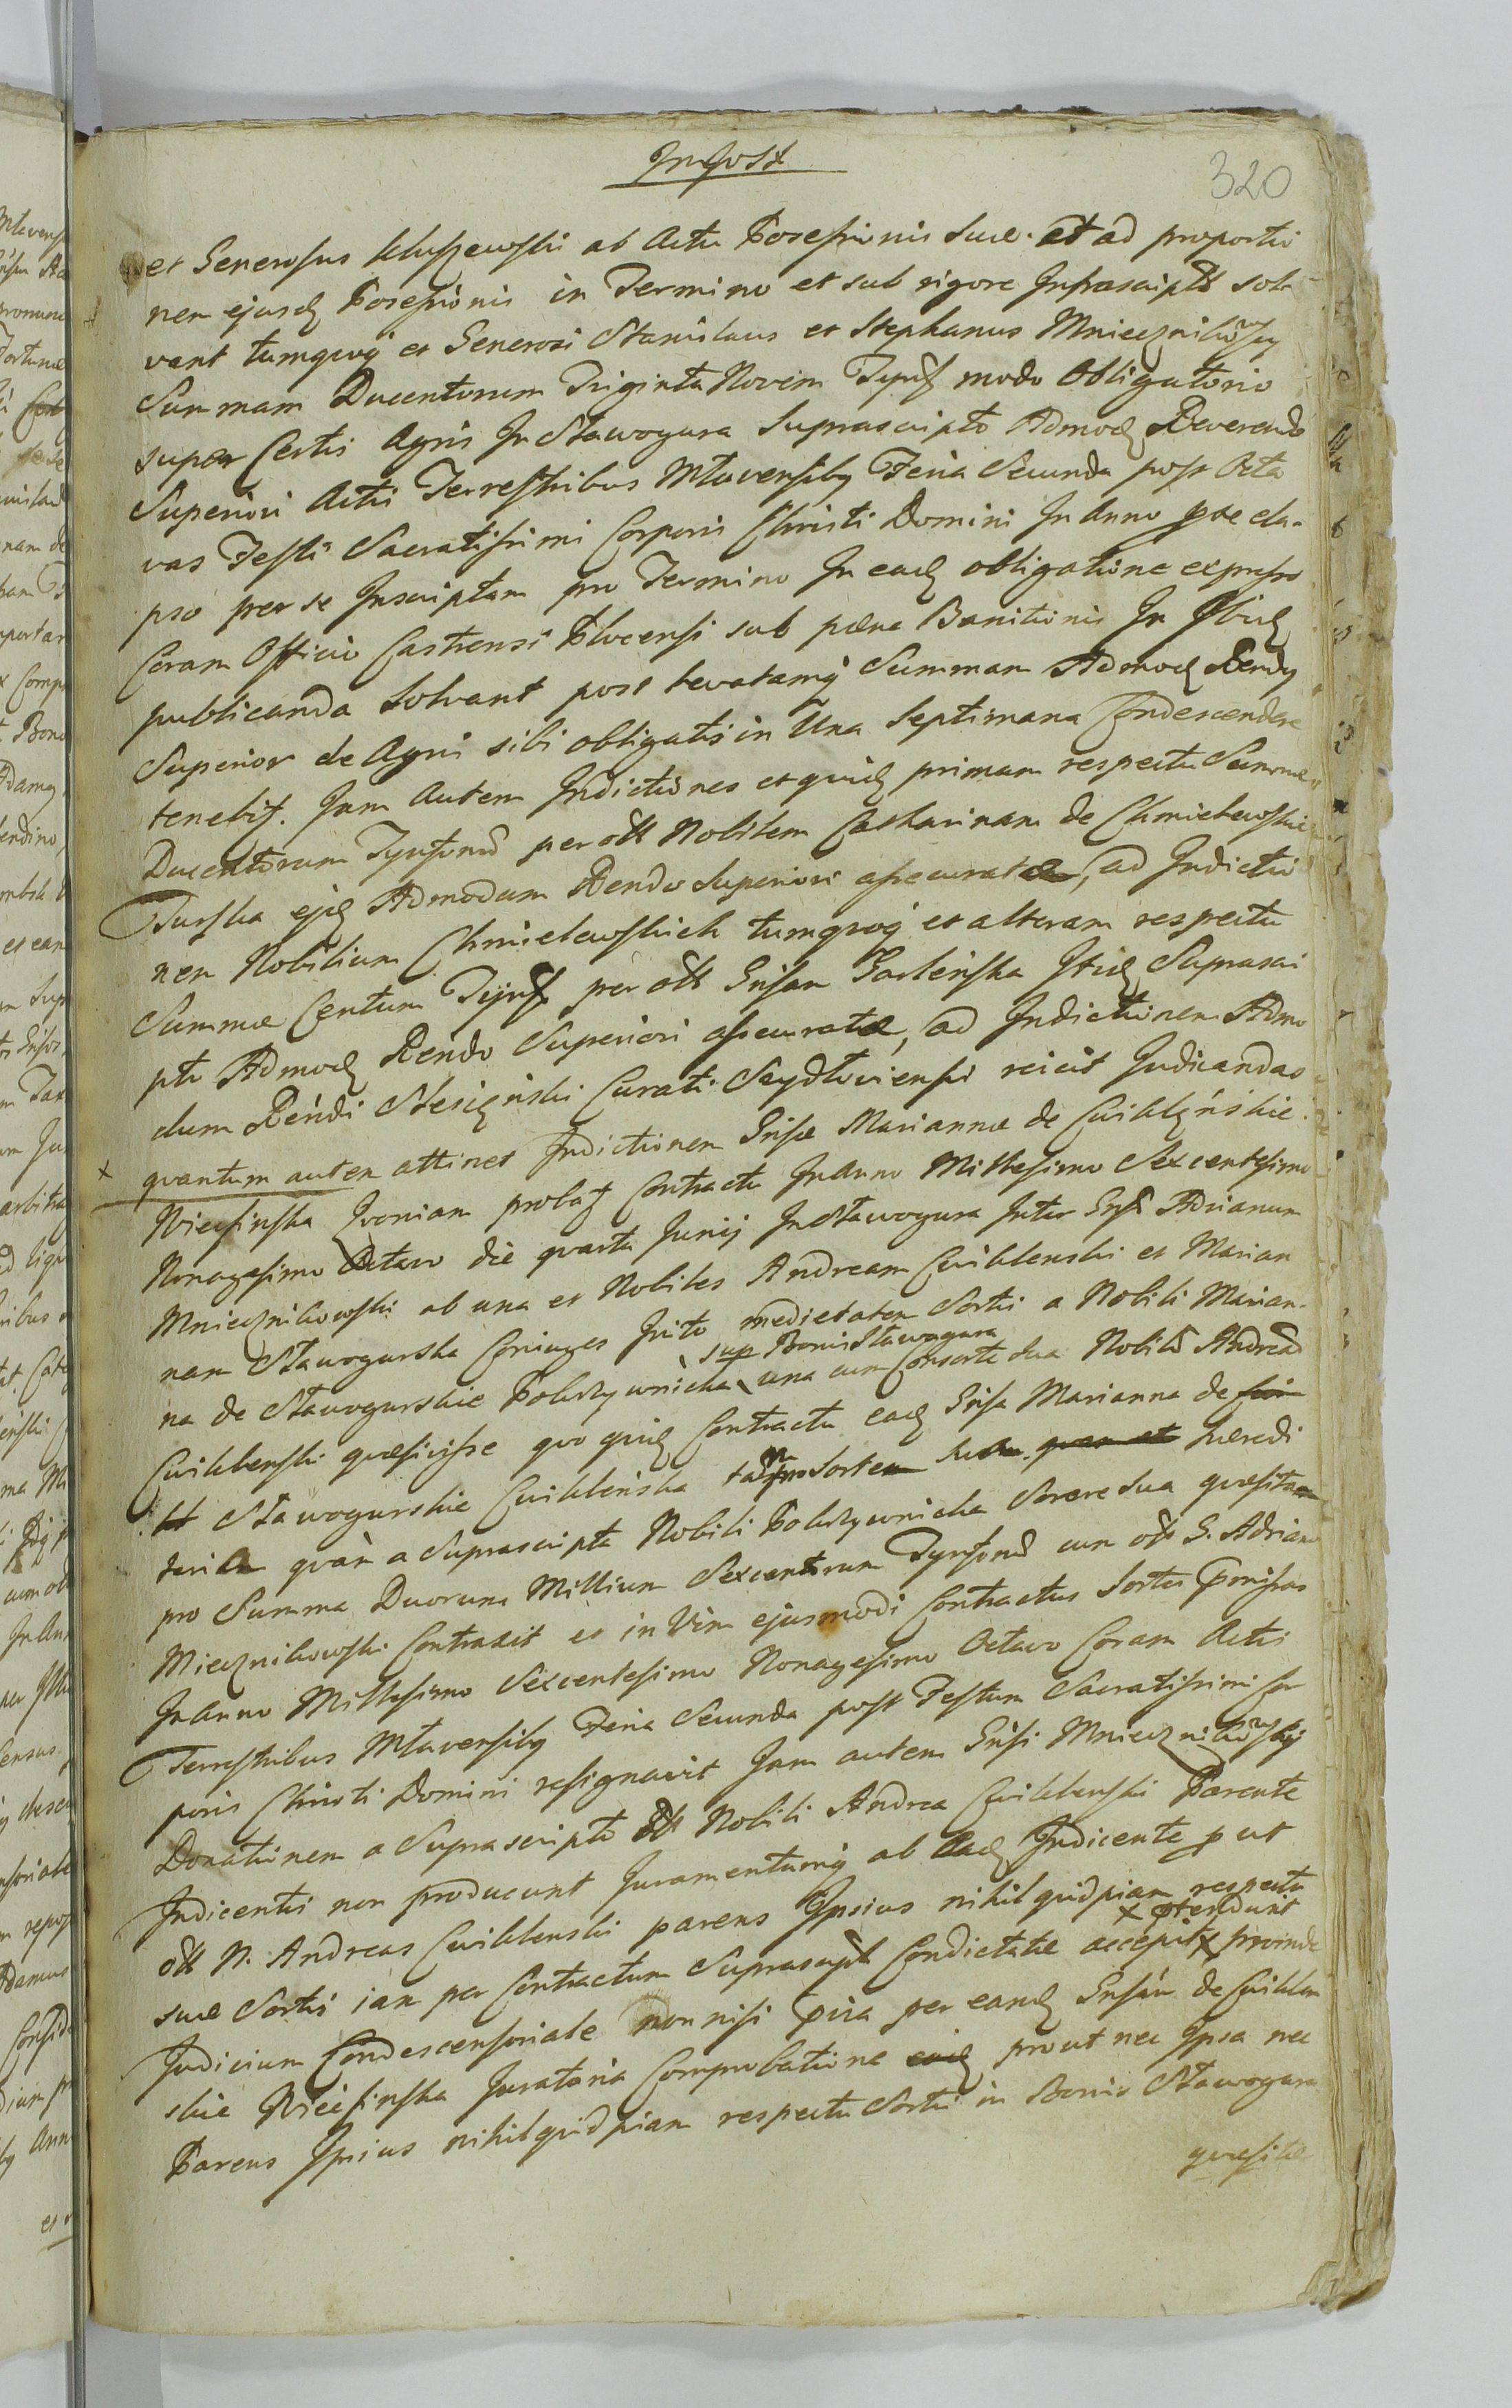 In Gost
320
et Generosus Kluszewski ab Actu Possessionis suæ. et ad proportio
nem ejusd Possessionis in Termino et sub rigore Infrascriptt sol
vant tumqvoq et Generosi Stanislaus et Stephanus Mniewznikowscy
Summam Ducentorum Triginta Novem Tynf modo Obligatorio
super Certis Agris In Stawogura Suprascripto Admod Reverendo
Superiori Actis Terrestribus Mlavensiby Feria Secunda post Octa
vas Festi Sacratissimi Corporis Christi Domini In Anno præ ela-
pso per se Inscriptam pro Termino In ead obligatione expresso
Coram Officio Castrensi Plocensi sub pæna Banitionis In Ibid
publicanda Solvant post levatamq Summam Admod Rendg
Superior de Agris sibi obligatis in Una Septimana Condescendere
tenebit. Jam Autem Indictiones et quid primam respectu Summæ
Ducentorum Tynfonu per ott Nobilem Catharinam de Chmielewskie
Turska ejd Admodum Rendo Superiori assecuratæ, ad Indictio
nem Nobilium Chmielewskich tumqvoq et alteram respectu
Summæ Centum Tynf per ott Gnsam Garlinska Itid Suprascri
pto Admod Rendo Superiori assecuratæ, ad Indictionem Admo
dum Rendi Stesczinski Curati Szydlowiensi reicit Judicandas
x qvantum autem attinet Indictionem Gnsæ Mariannæ de Cwiklinskie
Niecsinska Qvoniam probat Contractu In Anno Millesimo Sexcentesimo
Nonagesimo Octavo die qvarta Junij In Stawogura Inter Gnsu Adrianum
Mniewznikowski ab una et Nobiles Andream Cwiklenski et Marian
nam Stawogurska Coniuges Inito medietatem Sortis a Nobili Marian-
sup Bonis Stawogura
na de Stawogurskie Pokrzywnicka una cum Consorte sua Nobile Andrea
Cwiklenski qvæsivisse qvo qvid Contractu ead Gnsa Marianna de
Stawogurskie Cwiklinska tam Sortem suam qvam et hæredi
tariam qvàm a Suprascripta Nobili Pokrzywnicka Sorore sua qvæsitam
pro Summa Duorum Millium Sexcentorum Tynfonu cum ott G. Adriano
Miewznikowski Contraxit et in Vim ejusmodi Contractus Sortes
In Anno Millesimo Sexcentesimo Nonagesimo Octavo Coram Actis
Terrestribus Mlavensiby Feria Secunda post Festum Sacratissimi Cor
poris Christi Domini resignavit Jam autem Gnsi Mniewznikowscy
Donationem a Suprascripto ott Nobili Andrea Cwiklenski Parente
Indicentis non producunt Juramentumq ab Ead Indicente put
ott N. Andreas Cwiklenski parens Ipsius nihil qvidpiam respectu
x
suæ Sortis iam per Contractum Suprascript Condictatæ accepit x proinde
Judicium Condescensoriale non nisi per eand Gnsam de Cwiklin
skie Niecsinska Juratoria Comprobatione prout nec Ipsa nec
Parens Ipsius nihil qvidpiam respectu Sortis in Bonis Stawogura
qvæsitæ